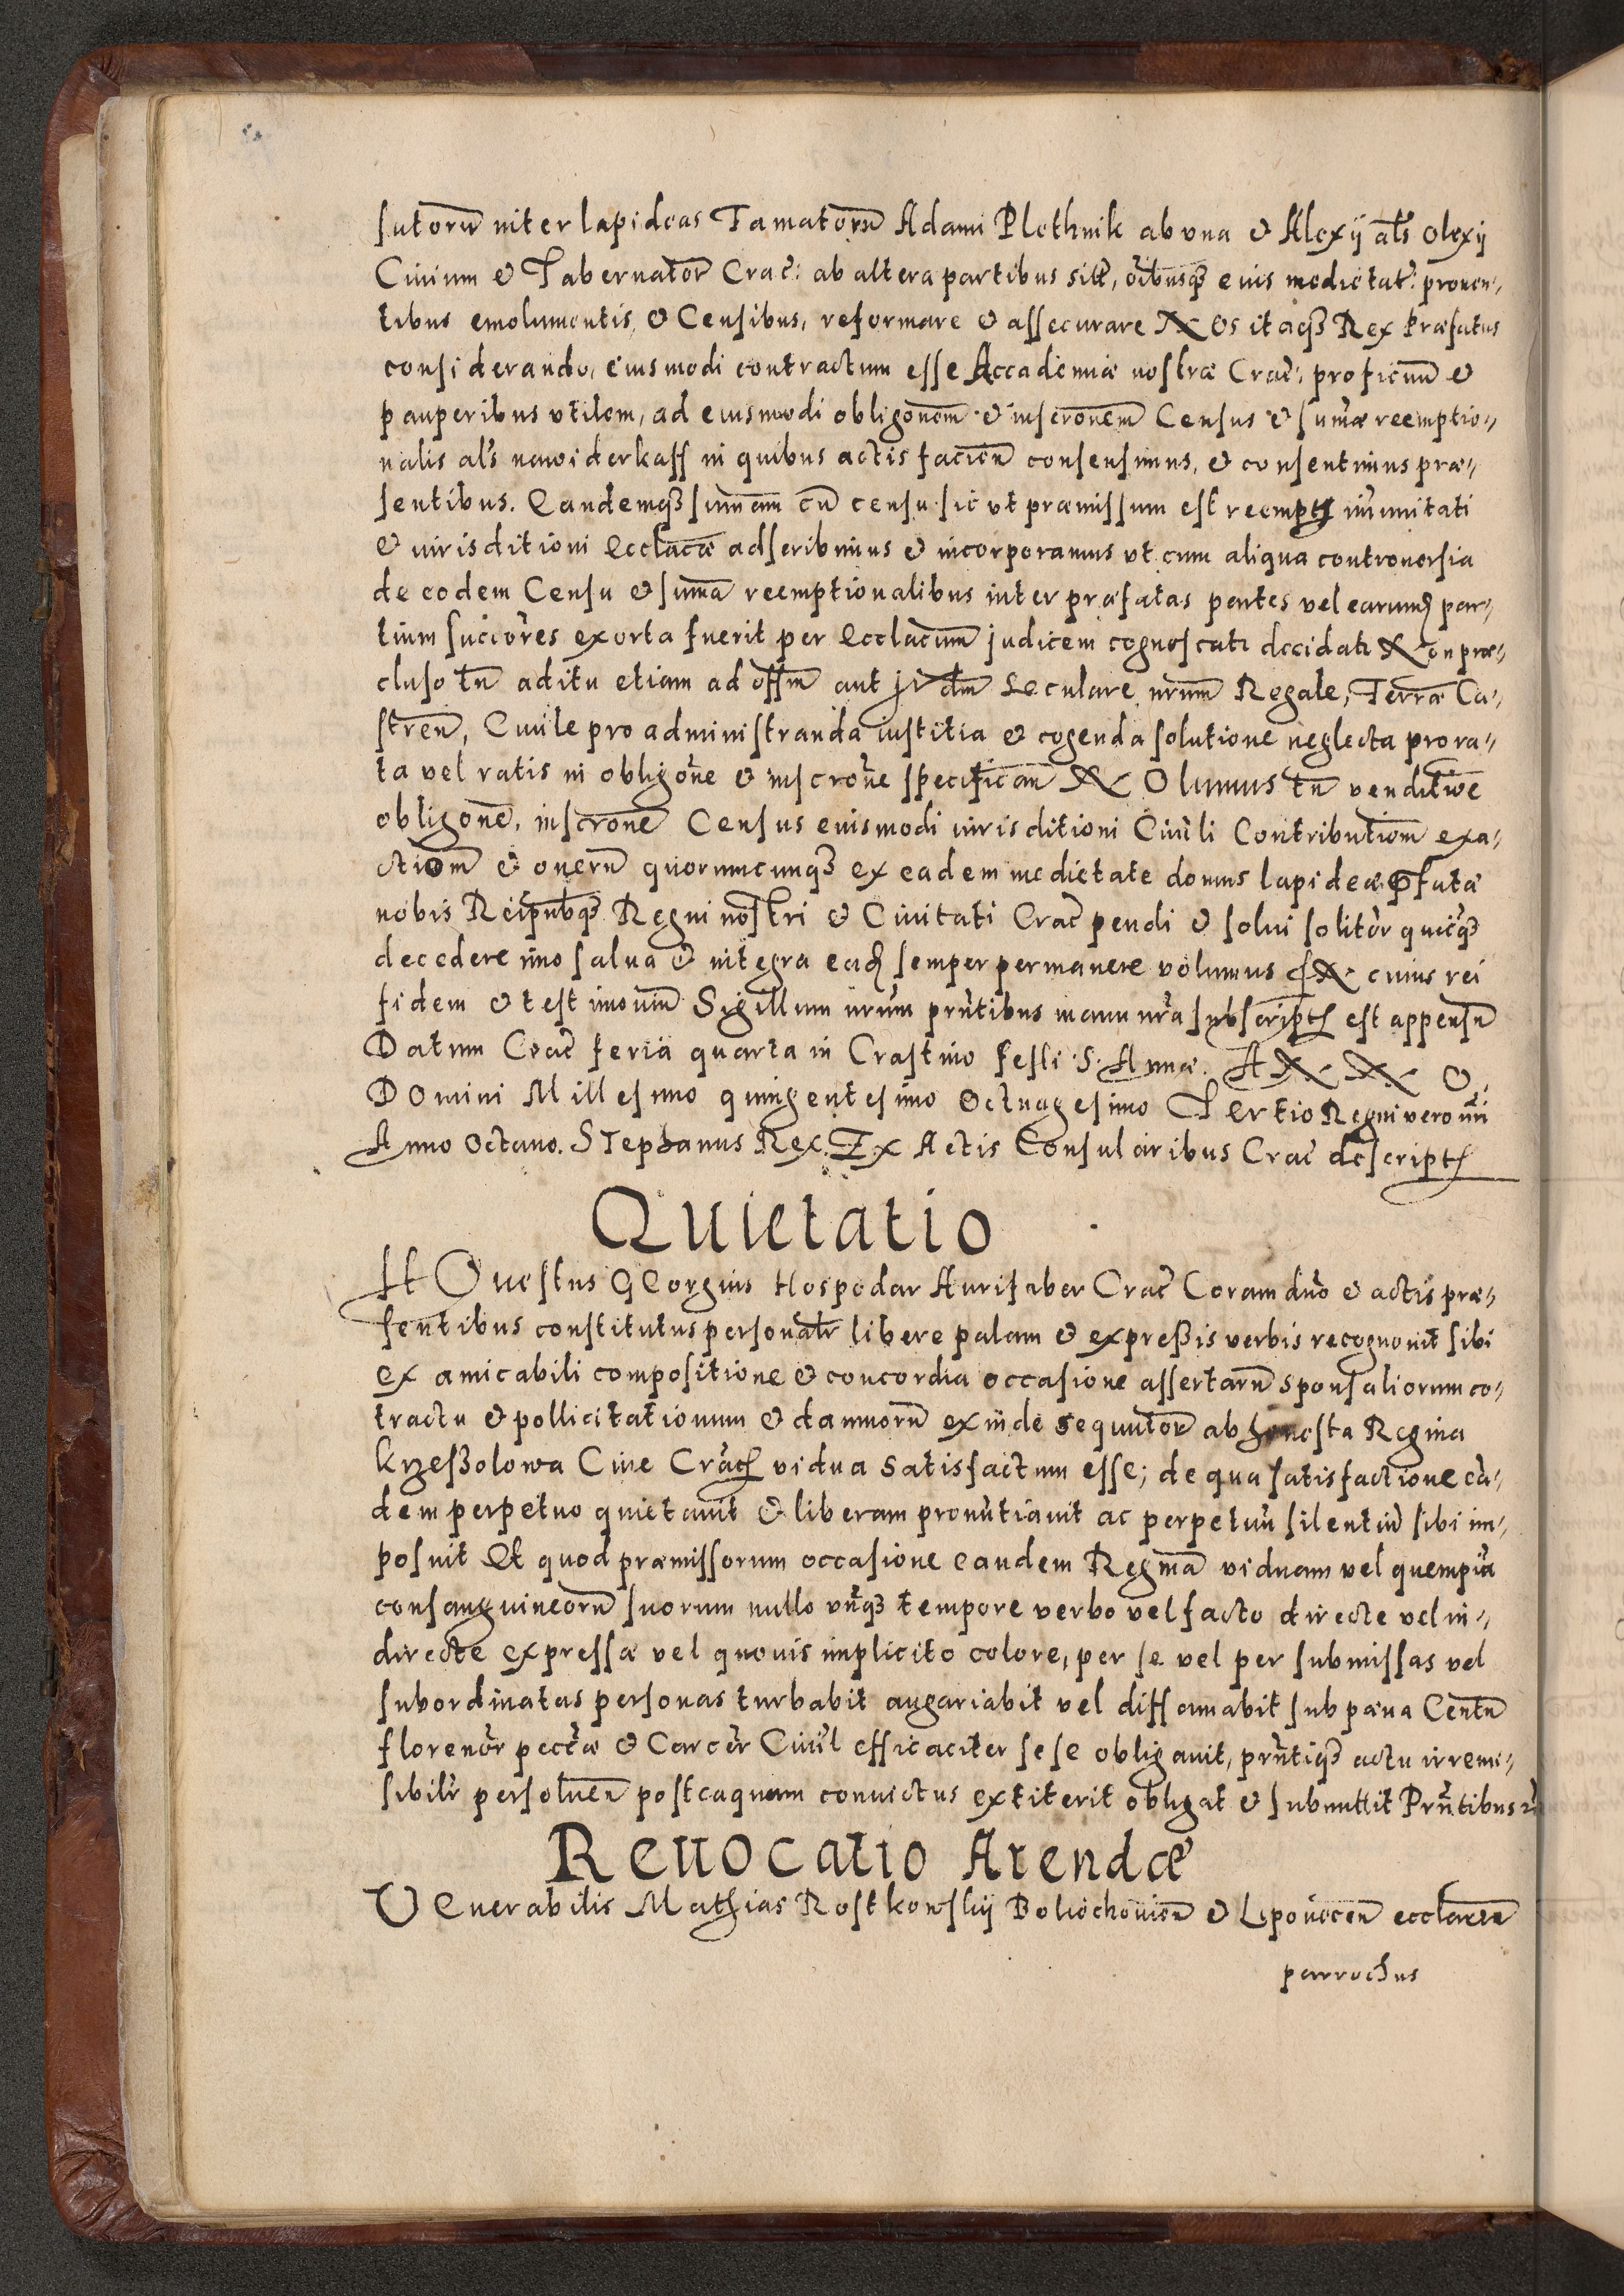 sutorū inter lapideas Famatorū Adami Plothnik ab vna & Alexij als̄ Olexij
Ciuium & Tabernator̄ Crac̄: ab altera partibus sitt̄, oībusq3 euis medietat: prouen-
tibus emolumentis & Censibus, reformare & assecurare NOs itaq3 Rex Præfatus
considerando, eiusmodi contractum esse Accademiæ nostræ Crac̄: proficuū &
pauperibus vtilem, ad eiusmodi obligōnem & inscrōnem Census & sum̄æ reemptio-
nalis al's nawiderkaff in quibus actis facien̄ consensimus, & consentimus præ-
sentibus. Eandemq3 sum̄am cū censu sic vt præmissum est reempt im̄unitati
& iurisditioni Eccl̄acæ adscribimus & incorporamus vt cum aliqua controuersia
de eodem Censu & sum̄a reemptionalibus inter præfatas partes vel earumd par-
tium sucīores exorta fuerit per Eccl̄acum judicem cognoscatr decidatr Non præ-
cluso tn̄ aditu etiam ad offm̄ aut jvdm̄ Seculare nrum̄ Regale, Terræ Ca-
stren̄, Ciuile pro administranda iustitia & cogenda solutione neglecta prora-
ta vel ratis in obligōne & inscrōne specifican̄ NOlumus tn̄ venditiōe
obligōne, inscrōne Census euismodi iurisditioni Ciuili Contributiom̄ exa-
ctiom̄ & onerū quorumcunq3 ex eadem medietate domus lapideæ pfatæ
nobis Reipub̄q3 Regni nostri & Ciuitati Crac̄ pendi & solui solitor̄ quicq3
decedere imo salua & integra ead semper permanere volumus IN cuius rei
fidem & testimoniū Sigillum nrūm prn̄tibus manu nrā subscript est appensū
Datum Crac̄ feria quarta in Crastino festi S. Annæ. ANNO
DOmini Millesimo quingentesimo Octuagesimo TErtio Regni vero nr̄i
Anno Octauo. STephanus Rex. Ex Actis Consularibus Crac̄ dēscript
Quietatio
HOnestus GEorgius Hospodar Aurifaber Crac̄ Coram duō & actis præ-
sentibus constitutus personalr̄ libere palam & expreßis verbis recognouit sibi
ex amicabili compositione & concordia occasione assertarū sponsaliorum co-
tractu & pollicitationum & damnorū exinde sequutor̄ ab honesta Regina
Krzeßolowa Ciue Crac̄ vidua satisfactum esse; de qua satisfactione ea-
dem perpetuo quietauit & liberam pronūtiauit ac perpetuū silentiū sibi im-
posuit Et quod præmissorum occasione eandem Reginā viduam vel quempiā
consanguineorū suorum nullo vnq̄3 tempore verbo vel facto directe vel in-
directe expressæ vel quouis implicito colore, per se vel per submissas vel
subordinatas personas turbabit angariabit vel diffamabit sub pæna Centū
florenor̄ pectæ & Carcer̄ Ciuil̄ efficaciter sese obligauit, prn̄tiq3 actu irremi-
sibilr̄ persoluen̄ posteaquam conuictus extiterit obligat & submittit Prn̄tibus
Reuocatio Arendæ
VEnerabilis Mathias Rostkowskij Boliochouien̄ & Lipouecen̄ ecclarum̄
parrochus